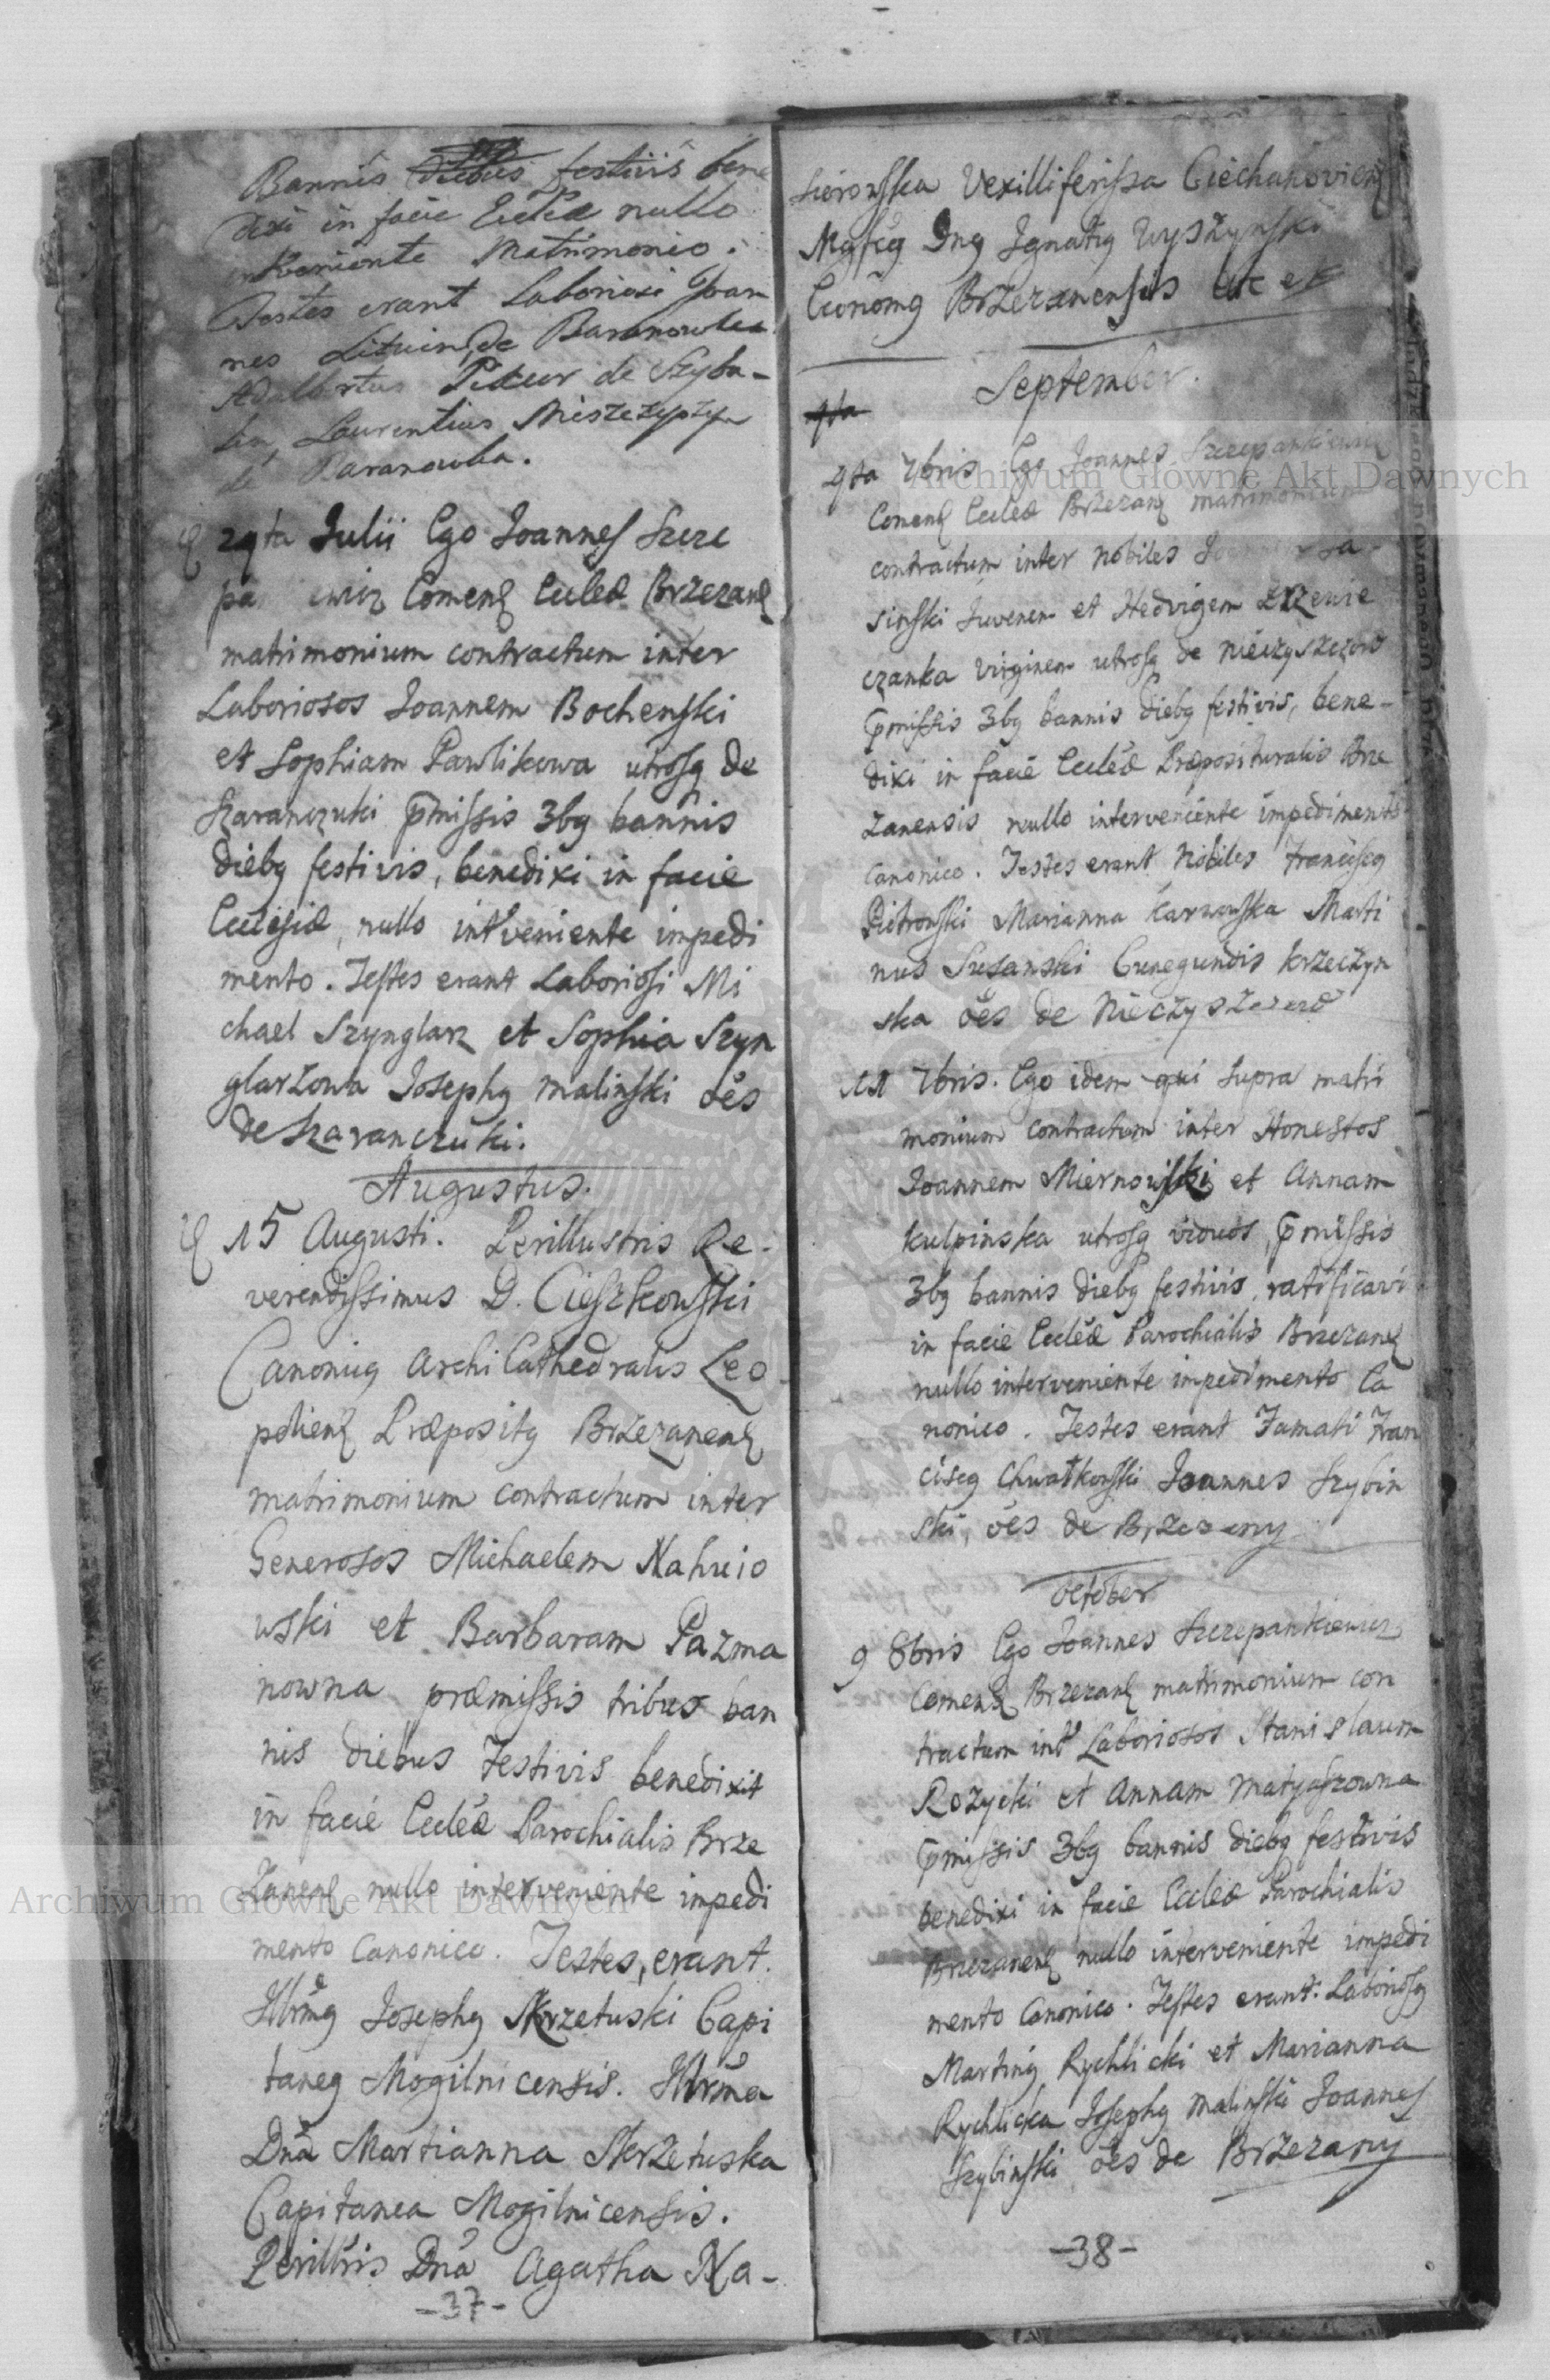 Bannis festivis bene
dixi in facie Eccliæ nullo
interveniente Matrimonio.
Testes erant Laboriosi Joan
nes Lituin de Baranowka
Adalbertus de Szyba-
lin, Laurentius
de Baranowka.
29ta Julii Ego Joannes Szcze
pa iewicz Comend Eccleæ Brzezan
matrimonium contractum inter
Laboriosos Joannem Bochenski
et Sophiam Pawlikowa utrosq de
Szaranczuki pmissis 3bg bannis
diebg festivis, benedixi in facie
Ecclesiæ, nullo intveniente impedi
mento. Testes erant Laboriosi Mi
chael Szynglarz et Sophia Szyn
glarzowa Josephg Malinski oes
de Szaranczuki.
Augustus.
15 Augusti. Perillustris Re-
verendissimus D. Cieszkowski
Canonicg Archi Cathedralis Leo-
polien Præpositg Brzezanen
matrimonium contractum inter
Generosos Michaelem Nahuio
wski et Barbaram Pazma
nowna præmissis tribus ban
nis diebus Festivis benedixit
in facie Eccleæ Parochialis Brze
zanen nullo interveniente impedi
mento Canonico. Testes, erant.
Illrmg Josephg Skrzetuski Capi
taneg Mogilnicensis. Illrma
Dna Martianna Skrzetuska
Capitanea Mogilnicensis.
Perillris Dna Agatha Na-
-37-
Vexilliferissa Ciechanovien
Mgfcg Dng Ignatig Wyszynski
Econōmg Brzezanensis etc etc
September.
9ta
9ta 7bris Ego Joannes Szczepankiewicz
Comend Eccleæ Brzezan matrimonium
contractum inter Nobiles
sinski Juvenem et Hedvigem
czanka Virginem utrosq de Nieczyszczow
pmissis 3bg bannis diebg festivis, bene-
dixi in facie Eccleæ Præposituralis Brze
zanensis nullo interveniente impedimento
canonico. Testes erant Nobiles Franciscg
Pietrowski Marianna Karwowska Marti
nus Cunegundis Krzeczyn
ska oes de Nieczyszczow
11 7bris. Ego idem qui supra matri
monium contractum inter Honestos
Joannem Miernowski et Annam
Kulpinska utrosq viduos, pmissis
3bg bannis diebg festivis, ratificavi
in facie Eccleæ Parochialis Brzezan
nullo interveniente impedimento Ca
nonico. Testes erant Famati Fran
ciscg Chwatkowski Joannes Szybin
ski, oes de Brzezany
October
9 8bris Ego Joannes Szczepankiewicz
Comend Brzezan matrimonium con
tractum int Laboriosos Stanislaum
Rozycki et Annam Matyaszowna
pmissis 3bg bannis diebg festivis
benedixi in facie Eccleæ Parochialis
Brzezanen nullo interveniente impedi
mento Canonico. Testes erant. Laboriosg
Marting Rychlicki et Marianna
Rychlicka Josephg Malinski Joannes
Szybinski oes de Brzezany
-38-
Archiwum Główne Akt Dawnych
Archiwum Główne Akt Dawnych